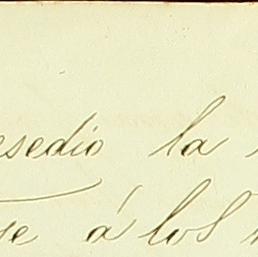 esedio la
se á los